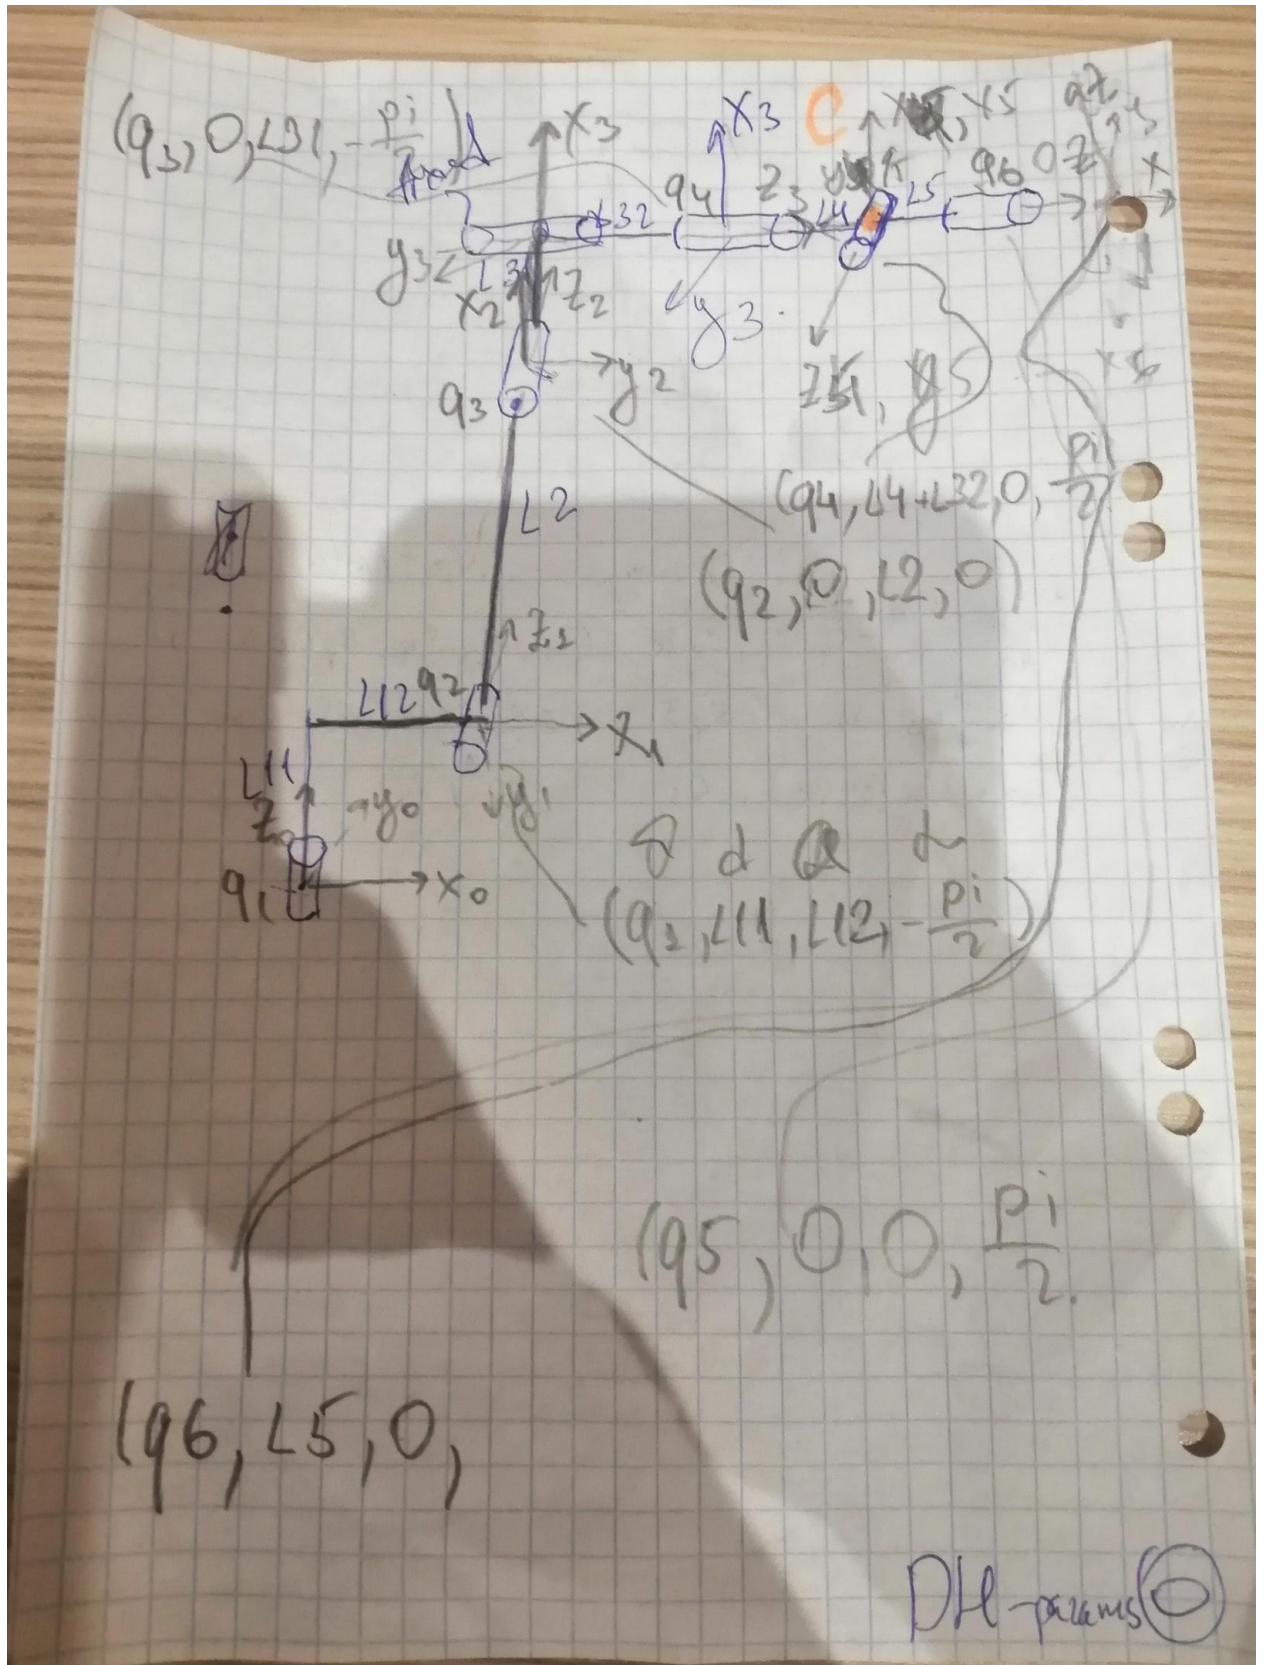 (q3, 0, L31, -pi/2)
x3
x3
C
x5
q4
z3
L5
q6
z
x
L32
L4
y3
L3
x2
z2
y3
y2
q3
x6
(q4, L4+L32, 0, pi/2)
L2
(q2, 0, L2, 0)
z1
L12
q2
x1
L11
z0
y0
y1
d
q1
x0
(q1, L11, L12, -pi/2)
(q5, 0, 0, pi/2
(q6, L5, 0,
DH-params